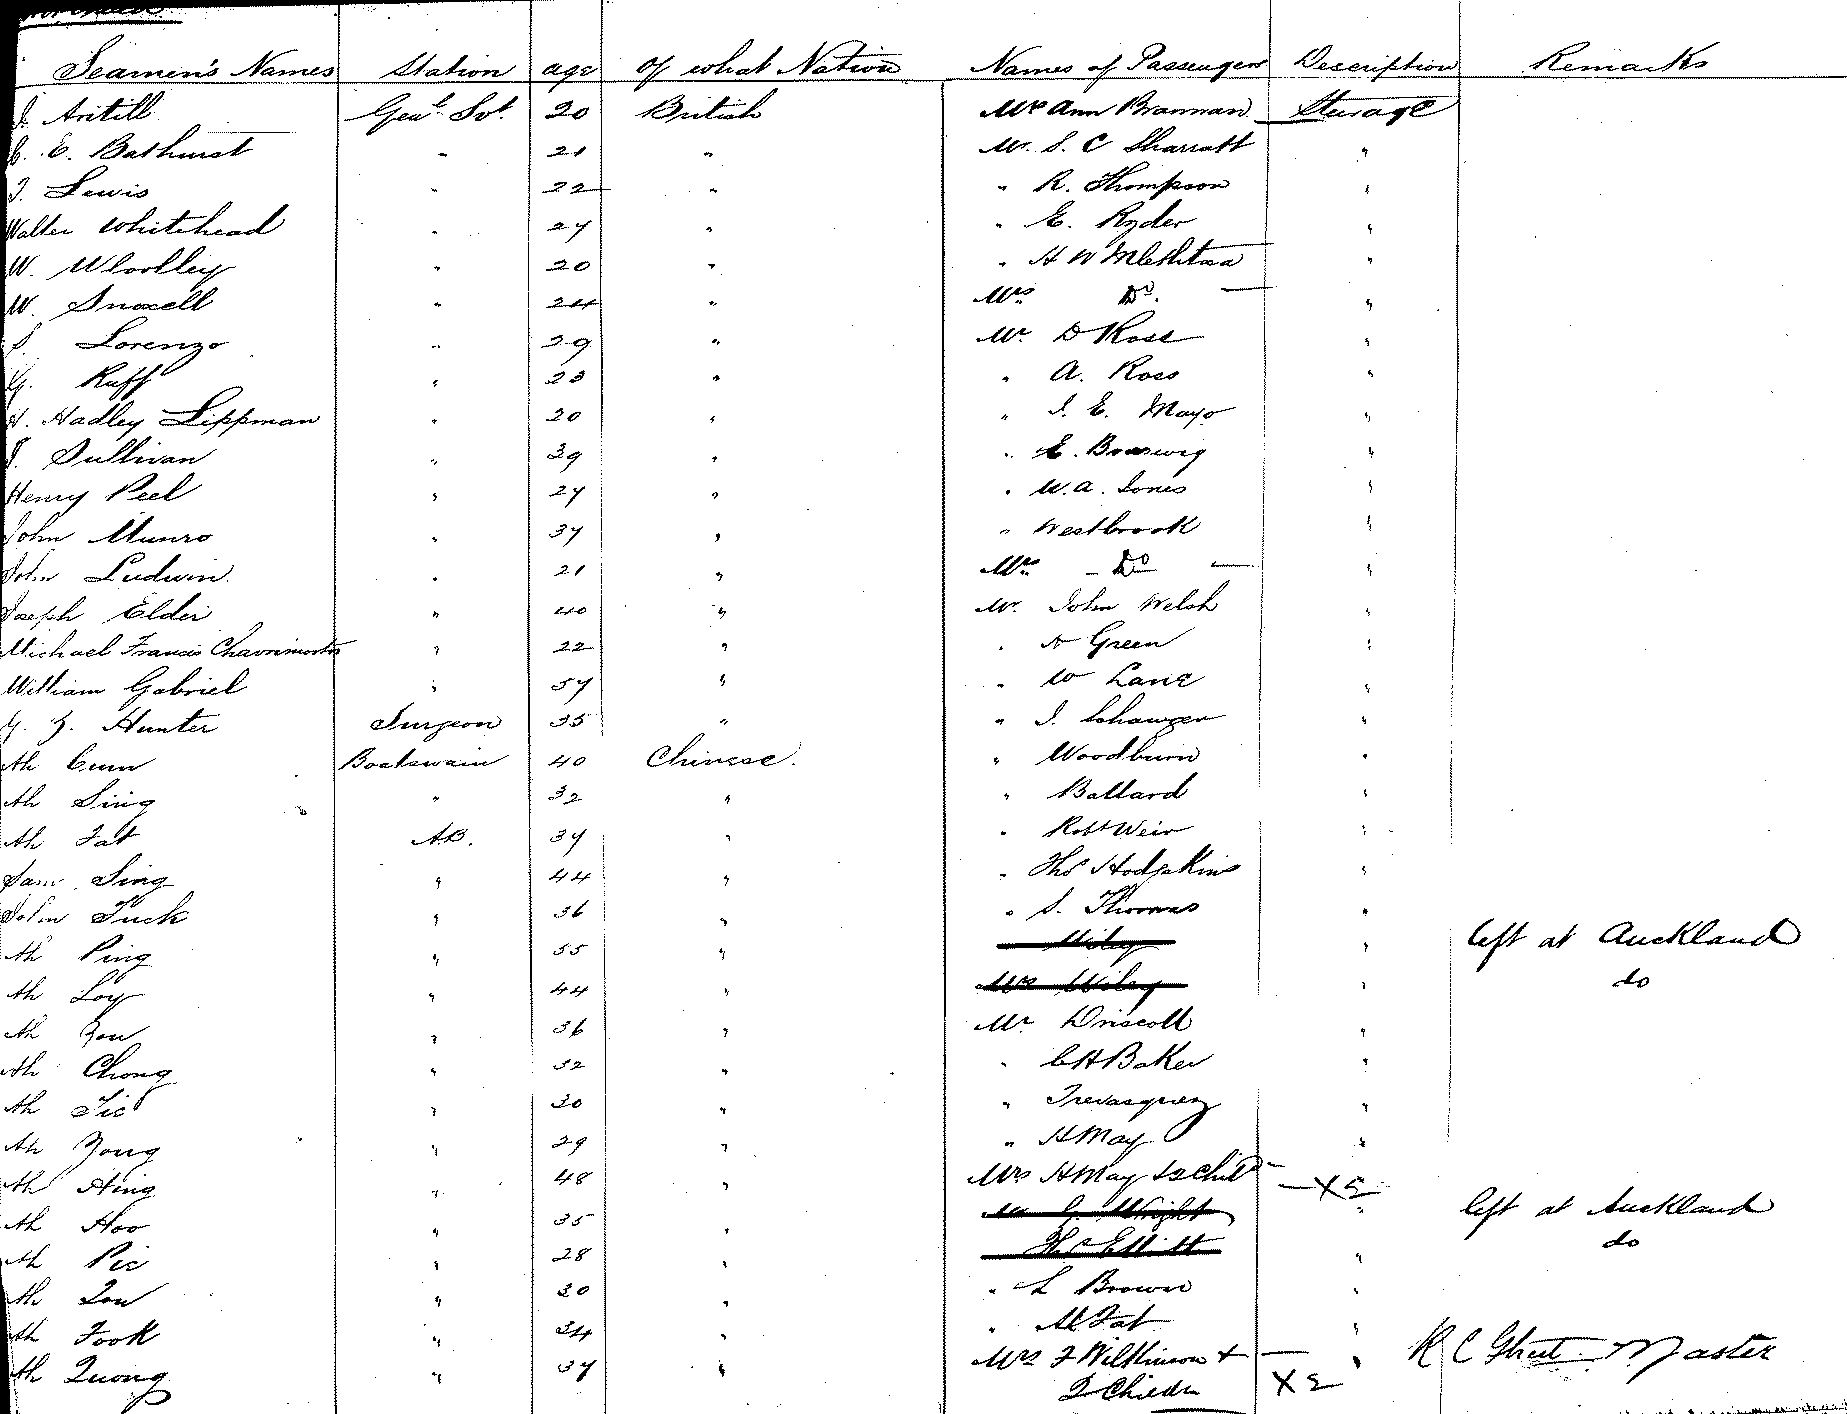 Seamen's Names Station age Of what Nation Names of Passengers Description Remarks
Aritill Genl Svt. 20 British Mrs Ann Brannan Steerage
E. Bathurst " 21 " Mr. S. C Sharratt "
Lewis " 22 " " R. Thompson "
Walter Whitehead " 27 " " E. Ryder "
W. Woolley " 20 " " H W "
W. Snoxell " 24 " Mrs Do. "
Lorenzo " 29 " Mr D Rose "
G. Ruff " 23 " " A. Ross "
H. Hadley Lippman " 20 " " J. E. Mayo "
J. Sullivan " 39 " " E. "
Henry Peel " 27 " " W. A. Jones "
John Munro " 37 " " Westbrook "
John Ludwin. " 21 " Mrs - Do - "
Joseph Elder " 40 " Mr. John Welsh "
Michael Francis " 22 " " A Green "
William Gabriel " 57 " " W Lane "
Hunter Surgeon 35 " " J. Schawger "
Ah Cum Boatswain 40 Chinese. " Woodburn "
Ah Sing " 32 " " Ballard "
Ah Fat A.B. 37 " " Robt Weir "
Sam Sing " 44 " " Thos Hodgkins "
John Tuck " 36 " " S. Thomas "
Ah Ping " 55 " Wiley " left at Auckland
Ah Loy " 44 " Mrs Wiley " do
Ah You " 36 " Mr Driscoll "
Ah Chong " 32 " " C H Baker "
Ah Tic " 30 " " "
Ah Yong " 29 " " H May "
Ah Hing " 48 " Mrs H May & 2 Child - X 2
Ah Hoo " 35 " Mr G. Wright " left at Auckland
Ah Pic " 28 " Elliott " do
Ah Lou " 30 " " L Brown "
Ah Fook " 34 " " Ah Fat "
Ah Quong " 37 " Mrs F Wilkinson + - " R C Master
2 Childn X 2